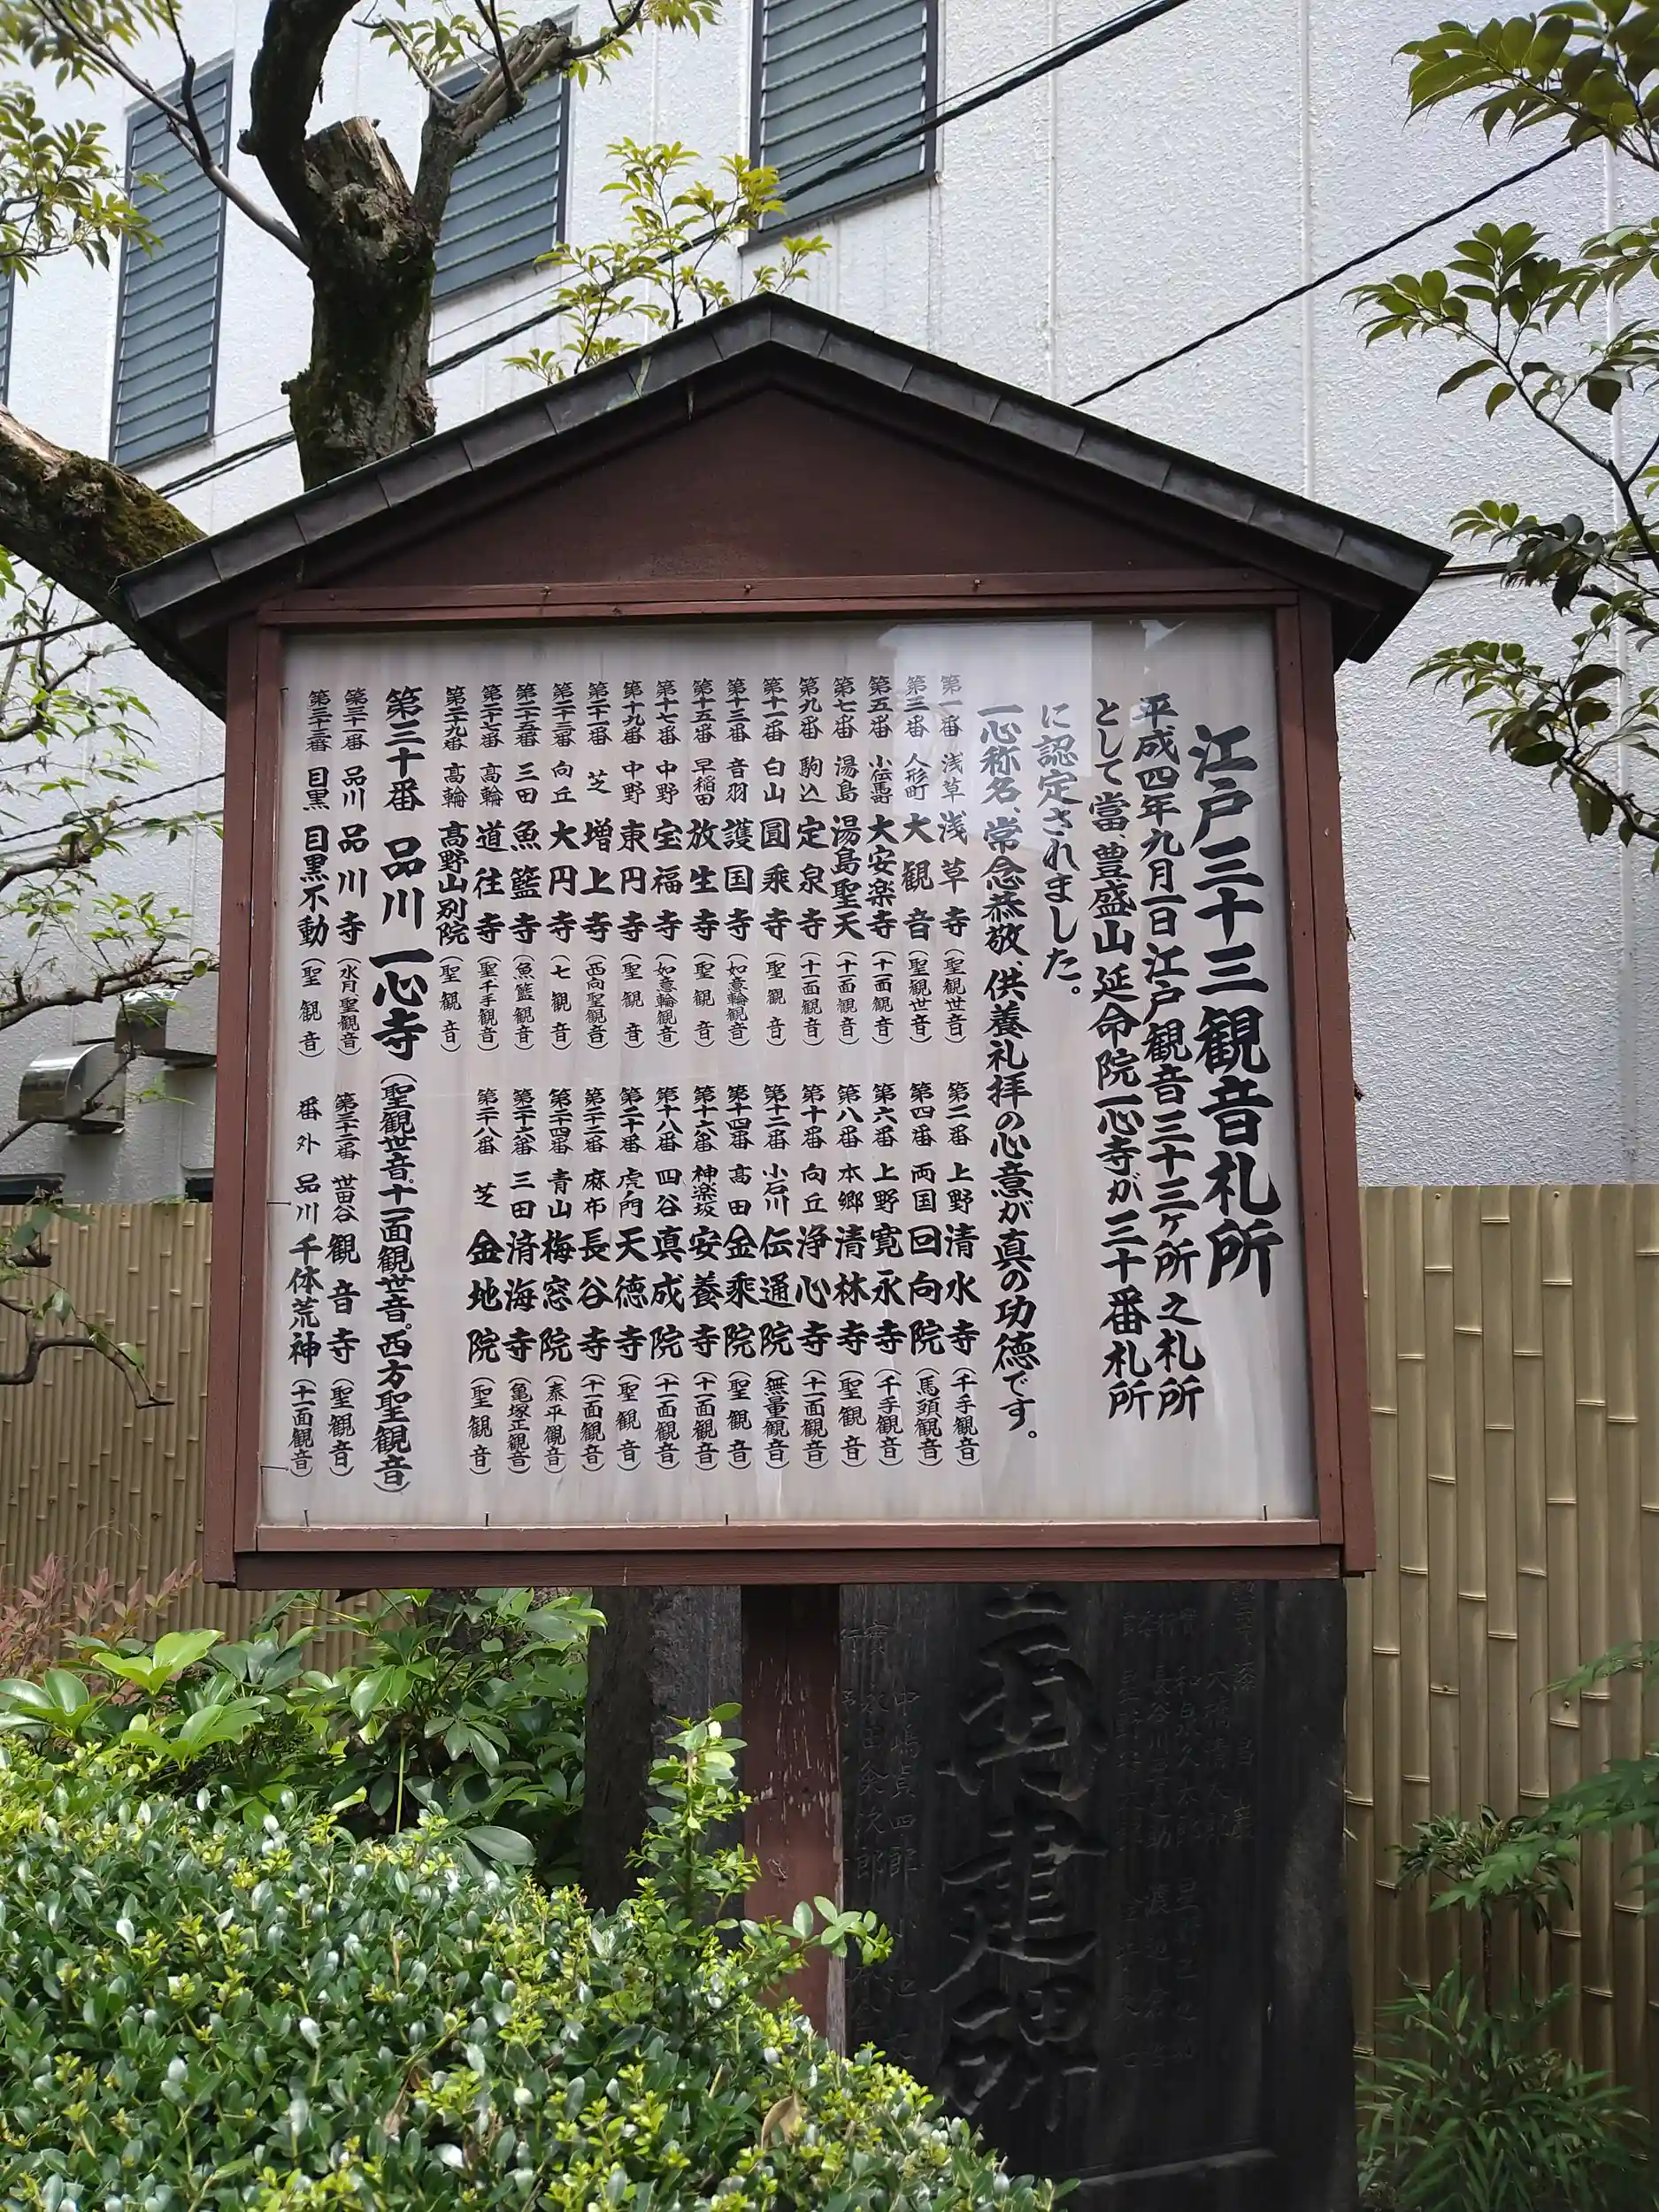 江戸三十三観音札所
平成四年九月一日江戸観音三十三ヶ所之札所
として當、豊盛山延命院一心寺が三十番札所
に認定されました。
一心称名、常念恭敬、供養礼拝の心意が真の功徳です。
第一番 浅草 浅草寺（聖観世音）
第二番 上野 清水寺（千手観音）
第三番 人形町 大観音（聖観世音）
第四番 両国 回向院（馬頭観音）
第五番 小伝馬町 大安楽寺（十一面観音）
第六番 上野 寛永寺（千手観音）
第七番 湯島 湯島聖天（十一面観音）
第八番 本郷 清林寺（聖観音）
第九番 駒込 定泉寺（十一面観音）
第十番 向丘 浄心寺（十一面観音）
第十一番 白山 圓乘寺（聖観音）
第十二番 小石川 伝通院（無量観音）
第十三番 音羽 護国寺（如意輪観音）
第十四番 高田 金乘院（聖観音）
第十五番 早稲田 放生寺（聖観音）
第十六番 神楽坂 安養寺（十一面観音）
第十七番 中野 宝福寺（如意輪観音）
第十八番 四谷 真成院（十一面観音）
第十九番 中野 東円寺（聖観音）
第二十番 虎ノ門 天徳寺（聖観音）
第二十一番 芝 増上寺（西向聖観音）
第二十二番 麻布 長谷寺（十一面観音）
第二十三番 向丘 大円寺（七観音）
第二十四番 青山 梅窓院（泰平観音）
第二十五番 三田 魚籃寺（魚籃観音）
第二十六番 三田 済海寺（亀塚正観音）
第二十七番 高輪 道往寺（聖千手観音）
第二十八番 芝 金地院（聖観音）
第二十九番 高輪 高野山別院（聖観音）
第三十番 品川 一心寺（聖観世音、十一面観世音。西方聖観音）
第三十一番 品川 品川寺（水月聖観音）
第三十二番 世田谷 観音寺（聖観音）
第三十三番 目黒 目黒不動（聖観音）
番外 品川 千体荒神（十一面観音）
再建碑
中嶋貞四郎